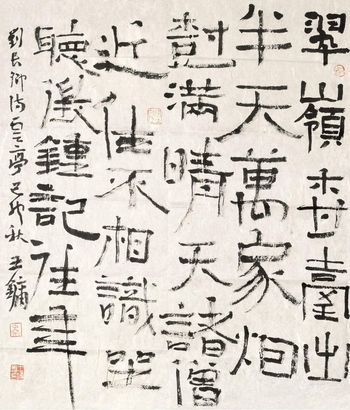 翠嶺香臺出
半天萬家烟
樹滿晴天諸僧
近住不相識坐
聽微鍾記往年
劉長卿詩 己卯秋 王鏞